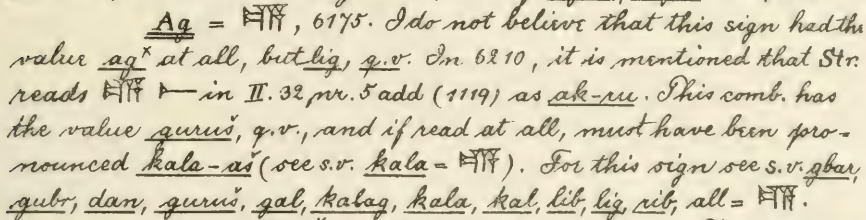 Ag = 𒆗, 6175. I do not believe that this sign had the
value ag× at all, but lig, q.v. In 6210, it is mentioned that Str.
reads 𒆗 𒀸 in II. 32, nr. 5 add (1119) as ak-ru. This comb. has
the value guruš, q.v., and if read at all, must have been pro-
nounced kala-aš (see s.v. kala = 𒆗). For this sign see s.v. gbar,
gubr, dan, guruš, gal, kalag, kala, kal, lib, lig, rib, all = 𒆗.